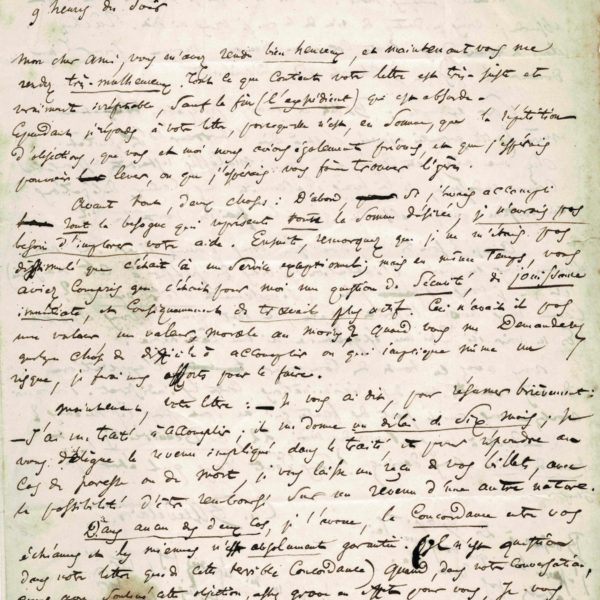 9 heures du soir
Mon cher ami, vous m'avez rendu bien heureux, et maintenant vous me
rendez très-malheureux. Tout ce que contient votre lettre est très-juste et
vraiment irréfutable, sauf la fin (l'expédient) qui est absurde.
Cependant je réponds à votre lettre, parce qu'elle n'est, en somme, que la répétition
d'objections, que vous et moi nous avions également prévues et que j'espérais
pouvoir lever, ou que j'espérais vous faire trouver légères.
Avant tout, deux choses : D'abord, si j'avais accompli
tout la besogne qui représente toute la somme désirée, je n'aurais pas
besoin d'implorer votre aide. Ensuite, remarquez que je ne m'étais pas
dissimulé que c'était là un service exceptionnel ; mais en même temps, vous
aviez compris que c'était pour moi une question de sécurité, de jouissance
immédiate, et conséquemment de travail plus actif. Ceci n'avait-il pas
une valeur, une valeur morale au moins ? Quand vous me demanderez
quelque chose de difficile à accomplir ou qui implique même un
risque, je ferai mes efforts pour le faire.
Maintenant, votre lettre : — Je vous ai dit, pour résumer brièvement :
— J'ai un traité à accomplir. il me donne un délai de six mois ; Je
vous délègue le revenu impliqué dans le traité, et pour répondre au
cas de paresse ou de mort, je vous laisse un reçu de vos billets, avec
la possibilité d'être remboursé sur un revenu d'une autre nature.
Dans aucun des deux cas, je l'avoue, la concordance entre vos
échéances et les miennes n'est absolument garantie. (Il n'est question
dans votre lettre que de cette terrible concordance) Quand, dans notre conversation,
cette objection, assez grave en effet pour vous, je vous